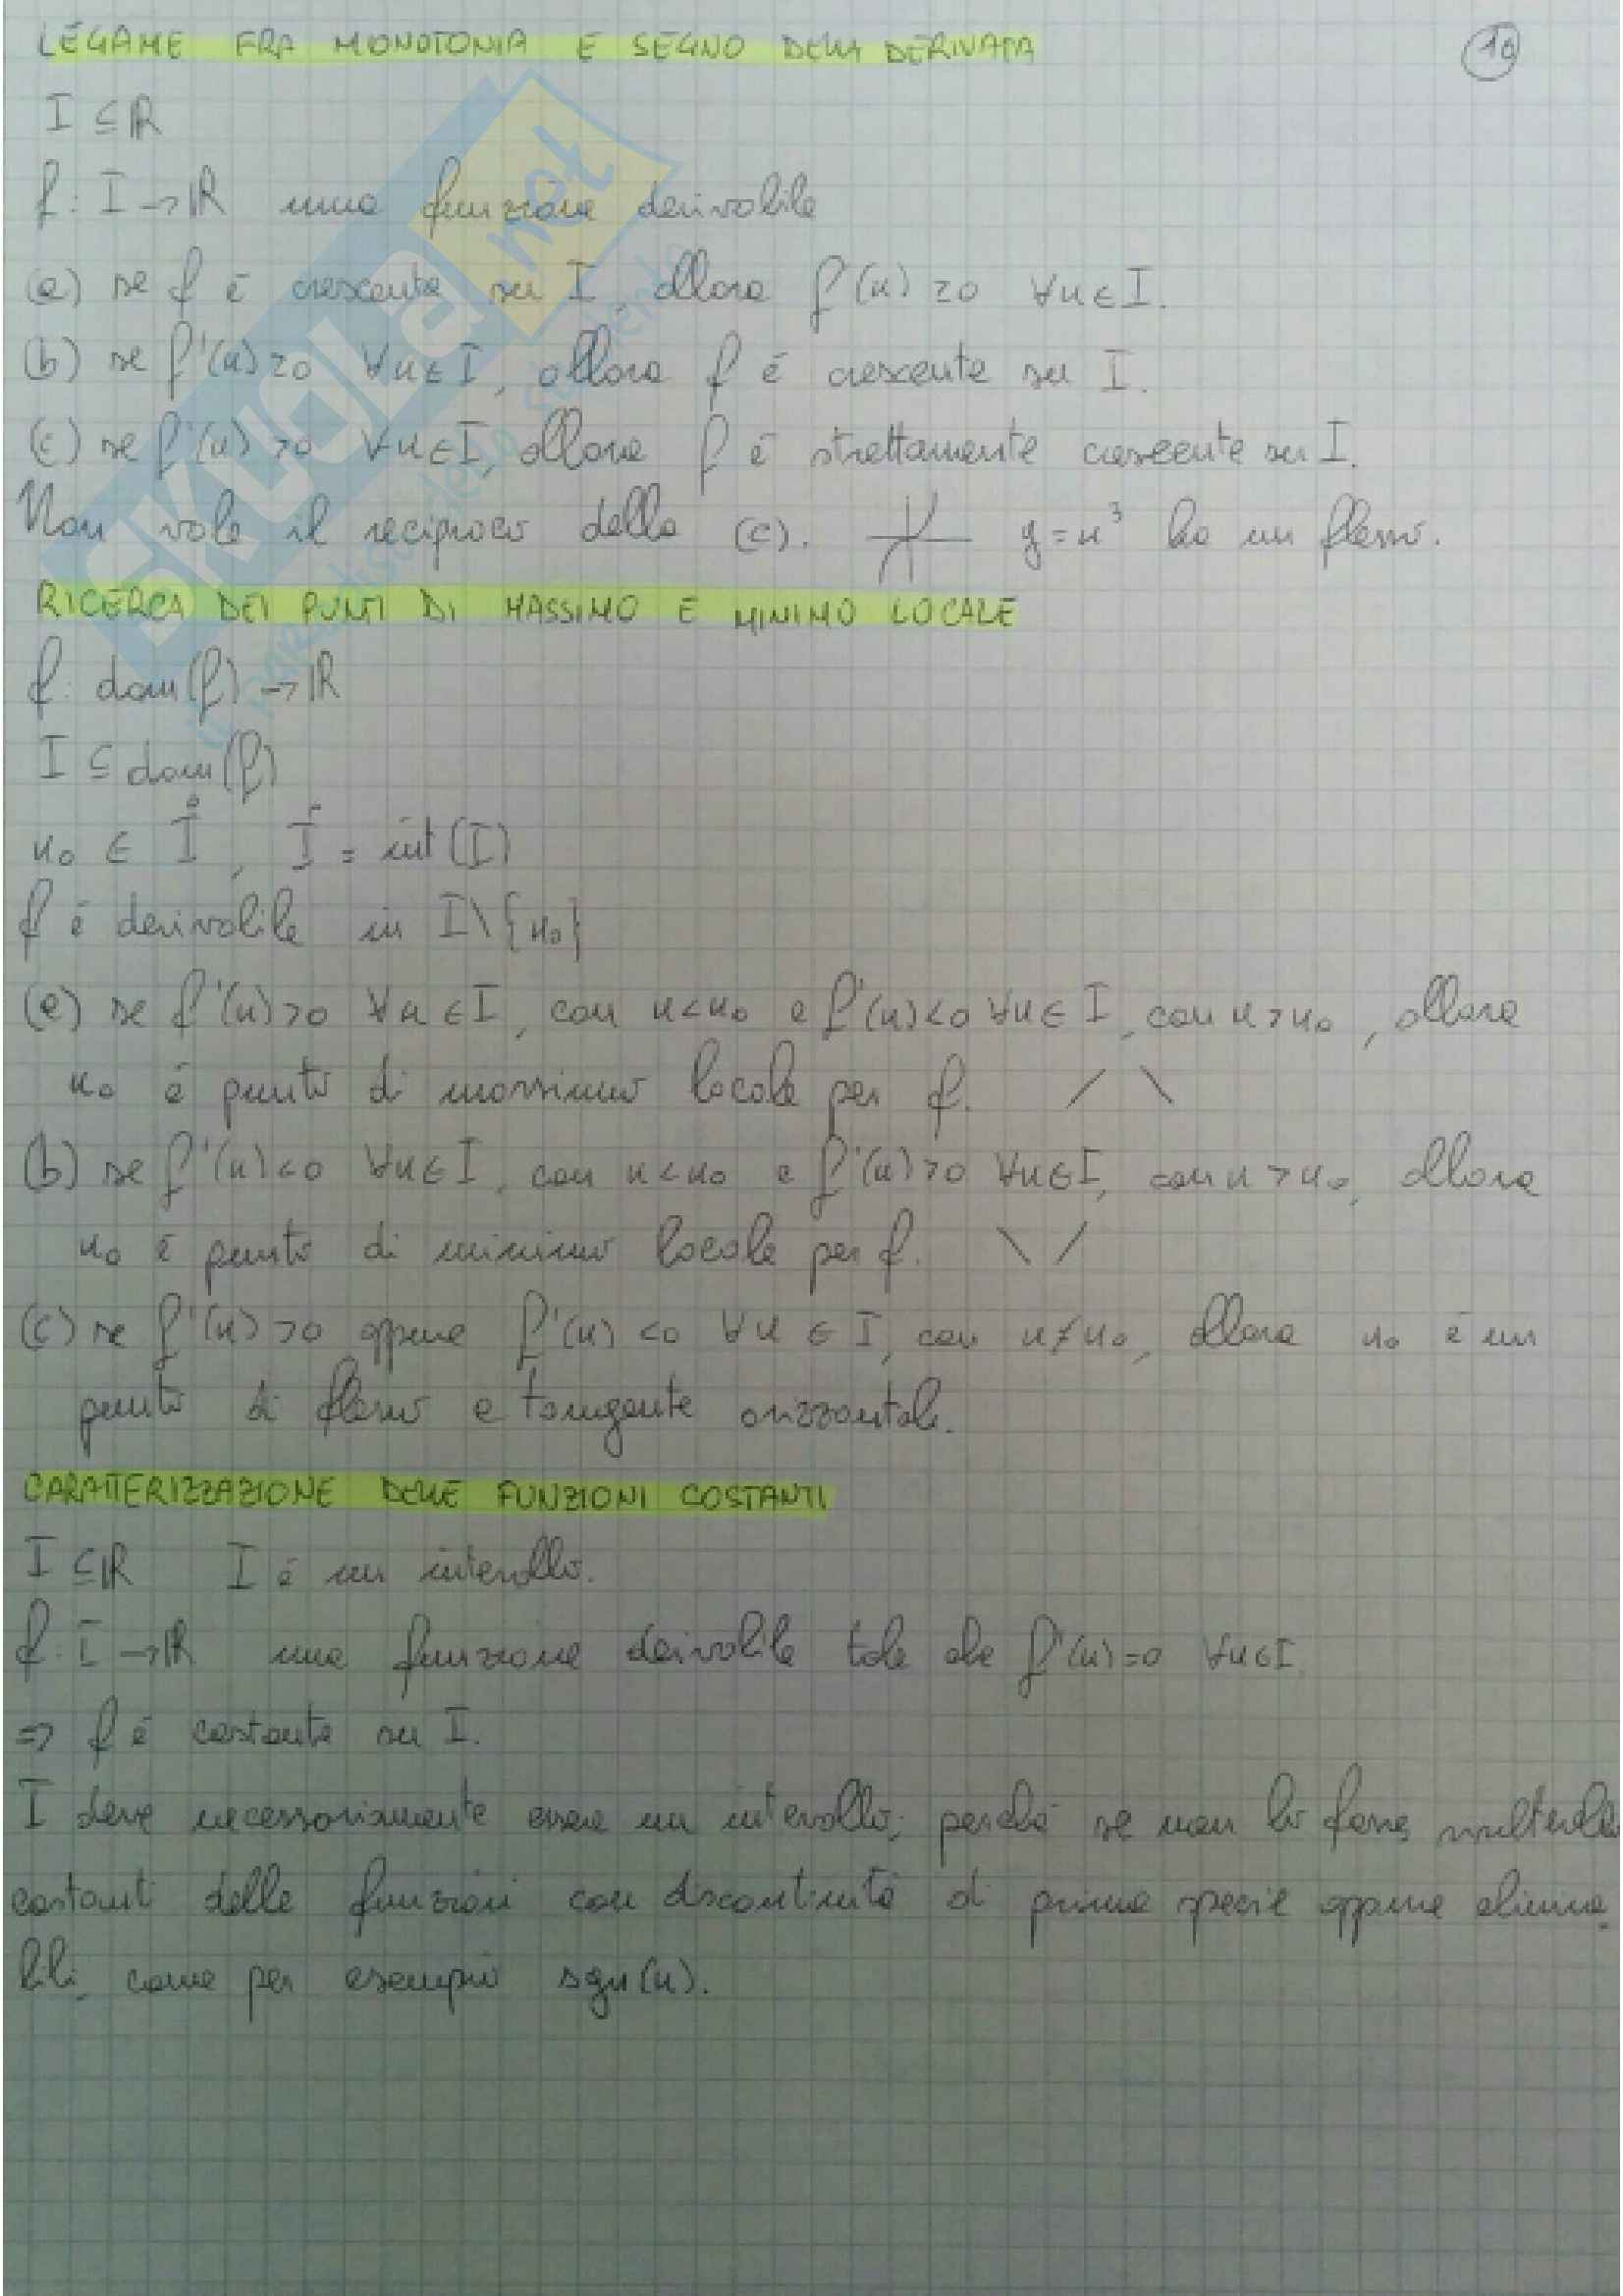 LEGAME FRA MONOTONIA E SEGNO DELLA DERIVATA
10
I ⊆ ℝ
f: I → ℝ una funzione derivabile
(a) se f é crescente su I, allora f'(x) ≥ 0 ∀x ∈ I.
(b) se f'(x) ≥ 0 ∀x ∈ I, allora f é crescente su I.
(c) se f'(x) > 0 ∀x ∈ I, allora f é strettamente crescente su I.
Non vale il reciproco della (c). y = x³ ha un flesso.
RICERCA DEI PUNTI DI MASSIMO E MINIMO LOCALE
f: dom(f) → ℝ
I ⊆ dom(f)
x₀ ∈ I̊, I̊ = int(I)
f é derivabile in I\{x₀}
(a) se f'(x) > 0 ∀x ∈ I, con x < x₀ e f'(x) < 0 ∀x ∈ I, con x > x₀, allora
x₀ é punto di massimo locale per f.
(b) se f'(x) < 0 ∀x ∈ I, con x < x₀ e f'(x) > 0 ∀x ∈ I, con x > x₀, allora
x₀ é punto di minimo locale per f.
(c) se f'(x) > 0 oppure f'(x) < 0 ∀x ∈ I, con x ≠ x₀, allora x₀ é un
punto di flesso a tangente orizzontale.
CARATTERIZZAZIONE DELLE FUNZIONI COSTANTI
I ⊆ ℝ I é un intervallo.
f: I → ℝ una funzione derivabile tale che f'(x) = 0 ∀x ∈ I.
⇒ f é costante su I.
I deve necessariamente essere un intervallo; perché se non lo fosse,
costanti delle funzioni con discontinuità di prima specie oppure elimina
bili, come per esempio sgn(x).
SKUOLA.net